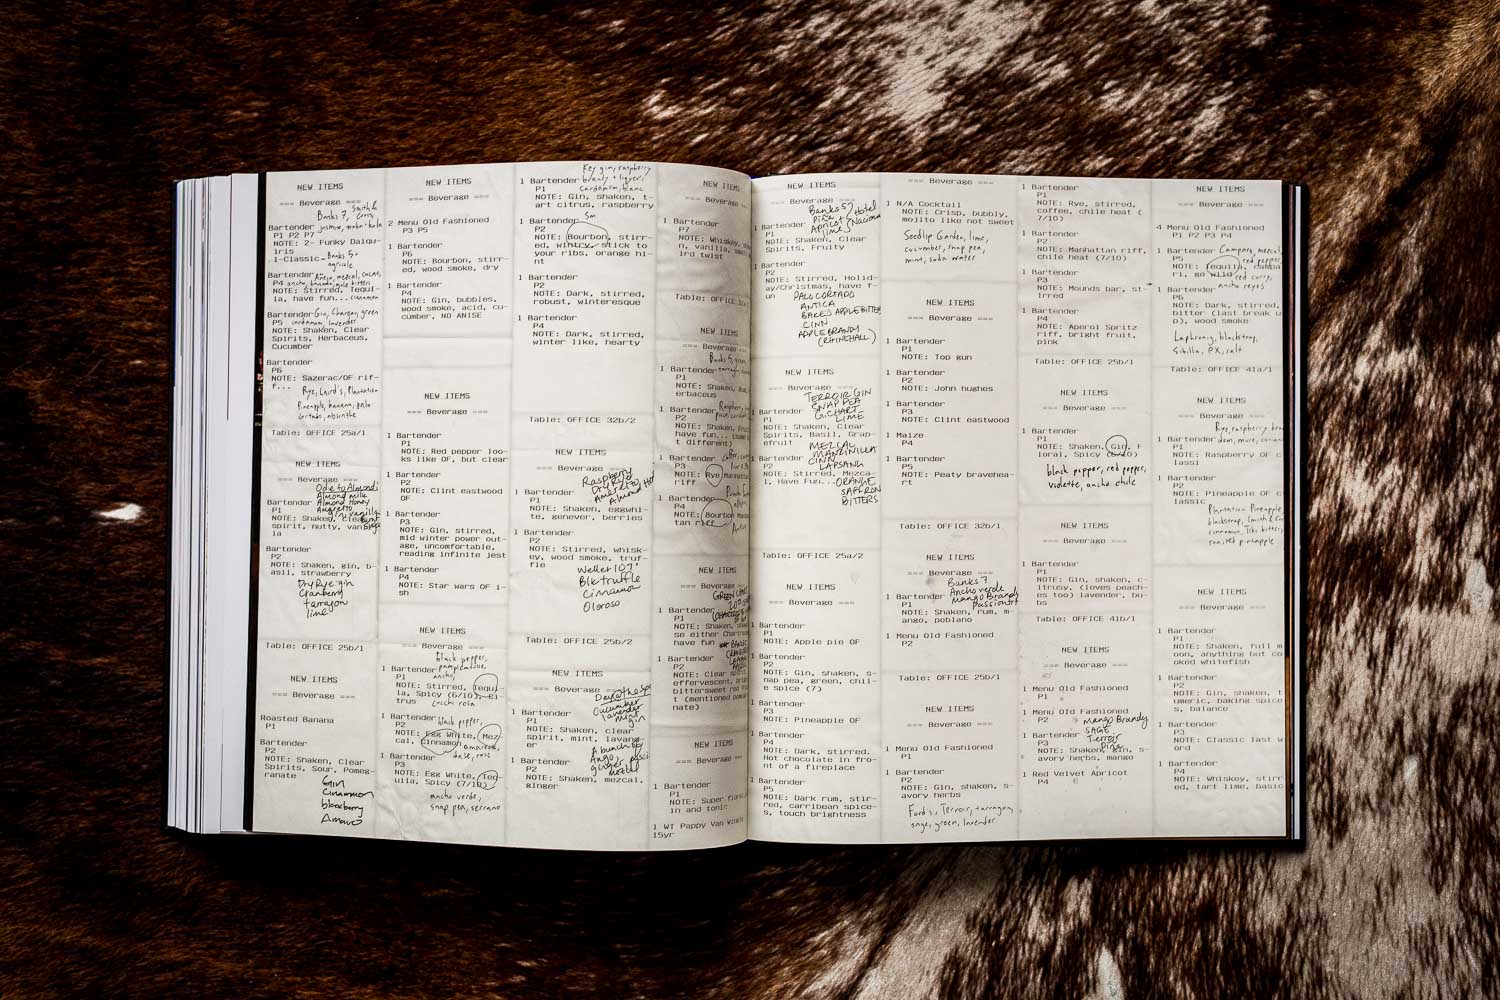 NEW ITEMS
=== Beverage ===
Smith & Cross,
Banks 7,
Bartender
P1 P2 P7
NOTE: 2- Funky Daiqu-
iris
1-Classic_ Banks 5,
agricole
Bartender Añejo, mezcal, cacao,
P4 ancho, banana, mole bitters
NOTE: Stirred, Tequi-
la, have fun... cinnamon
Bartender Gin, Chareau, green
P5 cardamom, lavender
NOTE: Shaken, Clear
Spirits, Herbaceus,
Cucumber
Bartender
P6
NOTE: Sazerac/OF rif-
f...
Rye, Laird's, Plantation
Pineapple, banana, palo
cortado, absinthe
Table: OFFICE 25a/1
NEW ITEMS
=== Beverage ===
Ode to Almond:
Almond milk
Almond Honey
Amaretto
gin, vanilla
Bartender
P1
NOTE: Shaken, clear
spirit, nutty, van
la
Bartender
P2
NOTE: Shaken, gin, b-
asil, strawberry
Dry Rye gin
Cranberry
tarragon
lime
Table: OFFICE 25b/1
NEW ITEMS
=== Beverage ===
Roasted Banana
P1
Bartender
P2
NOTE: Shaken, Clear
Spirits, Sour, Pomeg-
ranate
Gin
Cinnamon
bloodberry
Amaro
NEW ITEMS
=== Beverage ===
2 Menu Old Fashioned
P3 P5
1 Bartender
P6
NOTE: Bourbon, stirr-
ed, wood smoke, dry
1 Bartender
P4
NOTE: Gin, bubbles,
wood smoke, acid, cu-
cumber, NO ANISE
NEW ITEMS
=== Beverage ===
1 Bartender
P1
NOTE: Red pepper loo-
ks like OF, but clear
1 Bartender
P2
NOTE: Clint eastwood
OF
1 Bartender
P3
NOTE: Gin, stirred,
mid winter power out-
age, uncomfortable,
reading infinite jest
1 Bartender
P4
NOTE: Star wars OF i-
sh
NEW ITEMS
=== Beverage ===
black pepper,
pamplemousse,
ancho,
1 Bartender
P1
NOTE: Stirred, Tequi-
la, Spicy (6/10), Ci-
trus
cocchi rosa
1 Bartender black pepper,
P2
NOTE: Egg White, Mez-
cal, Cinnamon amarosa,
1 Bartender
P3
NOTE: Egg White, Teq-
uila, Spicy (7/10)
ancho verde,
snap pea, serrano
Key gin, raspberry
brandy + liqueur,
cardamom, blanc
1 Bartender
P1
NOTE: Gin, shaken, t-
art citrus, raspberry
1 Bartender
P2
NOTE: Bourbon, stirr-
ed, wintry, stick to
your ribs, orange hi-
nt
1 Bartender
P2
NOTE: Dark, stirred,
robust, winteresque
1 Bartender
P4
NOTE: Dark, stirred,
winter like, hearty
Table: OFFICE 32b/2
NEW ITEMS
=== Beverage ===
Raspberry
Dry Rye
Amaretto
Almond
1 Bartender
P1
NOTE: Shaken, eggwhi-
te, genever, berries
1 Bartender
P2
NOTE: Stirred, whisk-
ey, wood smoke, truf-
fle
Weller 107°
Blk truffle
Cinnamon
Oloroso
Table: OFFICE 25b/2
NEW ITEMS
=== Beverage ===
Cucumber
lavender
mint
gin
1 Bartender
P1
NOTE: Shaken, clear
spirit, mint, lavand-
er
1 Bartender
P2
NOTE: Shaken, mezcal,
ginger
A bunch of
Ango,
ginger,
mezcal
NEW ITEMS
=== Beverage
1 Bartender
P7
NOTE: Whiskey, sh
n, vanilla,
ird twist
Table: OFFICE
NEW ITEMS
=== Beverage ===
1 Bartender
P1
NOTE: Shaken,
erbaceus
1 Bartender
P2
NOTE: Shaken, Fru
have fun...
t different)
1 Bartender
P3
NOTE: Rye, Manhattan
riff
1 Bartender
P4
NOTE: Bourbon Manha
tan riff
NEW ITEMS
=== Beverage ===
1 Bartender
P1
NOTE: Shaken,
se either Chartreuse
have fun
1 Bartender
P2
NOTE: Clear spirit
effervescent,
bittersweet red
t (mentioned pome
nate)
NEW ITEMS
=== Beverage ===
1 Bartender
P1
NOTE: Super floral
in and tonic
1 WT Pappy Van Winkle
15yr
NEW ITEMS
=== Beverage ===
Banks 5,
Piña +
Apricot
lime
1 Bartender
P1
NOTE: Shaken, Clear
Spirits, Fruity
1 Bartender
P2
NOTE: Stirred, Holid-
ay/Christmas, have f-
un
PALO CORTADO
ANTICA
BAKED APPLE BITTERS
CINN
APPLE BRANDY
(RHINEHALL)
NEW ITEMS
=== Beverage ===
TERROIR GIN
SNAP PEA
G. CHART
LIME
1 Bartender
P1
NOTE: Shaken, Clear
Spirits, Basil, Grap-
efruit
MEZCAL
MANZINILLA
CINN
LAPSANG
1 Bartender
P2
NOTE: Stirred, Mezca-
l, Have Fun...
ORANGE
SAFFRON
BITTERS
Table: OFFICE 25a/2
NEW ITEMS
=== Beverage ===
1 Bartender
P1
NOTE: Apple pie OF
1 Bartender
P2
NOTE: Gin, shaken, s-
nap pea, green, chil-
e spice (7)
1 Bartender
P3
NOTE: Pineapple OF
1 Bartender
P4
NOTE: Dark, stirred.
Hot chocolate in fro-
nt of a fireplace
1 Bartender
P5
NOTE: Dark rum, stir-
red, carribean spice-
s, touch brightness
=== Beverage ===
1 N/A Cocktail
NOTE: Crisp, bubbly,
mojito like not sweet
Seedlip Garden, lime,
cucumber, snap pea,
mint, soda water
NEW ITEMS
=== Beverage ===
1 Bartender
P1
NOTE: Top gun
1 Bartender
P2
NOTE: John hughes
1 Bartender
P3
NOTE: Clint eastwood
1 Maize
P4
1 Bartender
P5
NOTE: Peaty bravehea-
rt
Table: OFFICE 32b/1
NEW ITEMS
=== Beverage ===
Banks 7
Ancho verde
mango Brandy
passionfrt
1 Bartender
P1
NOTE: Shaken, rum, m-
ango, poblano
1 Menu Old Fashioned
P2
Table: OFFICE 25b/1
NEW ITEMS
=== Beverage ===
1 Menu Old Fashioned
P1
1 Bartender
P2
NOTE: Gin, shaken, s-
avory herbs
Ford's, Terroir, tarragon,
sage, green, lavender
1 Bartender
P1
NOTE: Rye, stirred,
coffee, chile heat (
7/10)
1 Bartender
P2
NOTE: Manhattan riff,
chile heat (7/10)
1 Bartender
P3
NOTE: Mounds bar, st-
irred
1 Bartender
P4
NOTE: Aperol Spritz
riff, bright fruit,
pink
Table: OFFICE 25b/1
NEW ITEMS
=== Beverage ===
1 Bartender
P1
NOTE: Shaken, Gin, F-
loral, Spicy (6/10)
black pepper, red pepper,
violette, ancho chile
NEW ITEMS
=== Beverage ===
1 Bartender
P1
NOTE: Gin, shaken, c-
itrusy, (loves peach-
es too) lavender, bu-
bs
Table: OFFICE 41b/1
NEW ITEMS
=== Beverage ===
1 Menu Old Fashioned
P1
1 Menu Old Fashioned
P2
mango Brandy
SAGE
Terroir
Piña
1 Bartender
P3
NOTE: Shaken, gin, s-
avory herbs, mango
1 Red Velvet Apricot
P4
4 Menu Old Fashioned
P1 P2 P3 P4
1 Bartender Campari, mezcal,
P5 red pepper,
NOTE: Tequila, campa-
ri, go wild red curry,
ancho reyes
1 Bartender
P6
NOTE: Dark, stirred,
bitter (last break u
p), wood smoke
Laphroaig, blackstrap,
Sibilla, PX, salt
Table: OFFICE 41a/1
NEW ITEMS
=== Beverage ===
Rye, raspberry
1 Bartender
P1
NOTE: Raspberry OF c
lassi
1 Bartender
P2
NOTE: Pineapple OF c
lassic
Plantation Pineapple
blackstrap, Smith & Cross
cinnamon, Tiki bitters,
roasted pineapple
NEW ITEMS
=== Beverage ===
1 Bartender
P1
NOTE: Shaken, full m
oon, anything but co
oked whitefish
1 Bartender
P2
NOTE: Gin, shaken, t
umeric, baking spice
s, balance
1 Bartender
P3
NOTE: Classic last w
ord
1 Bartender
P4
NOTE: Whiskey, stirr
ed, tart lime, basic